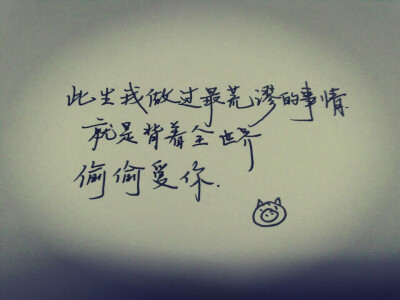 此生我做过最荒谬的事情
就是背着全世界
偷偷爱你.